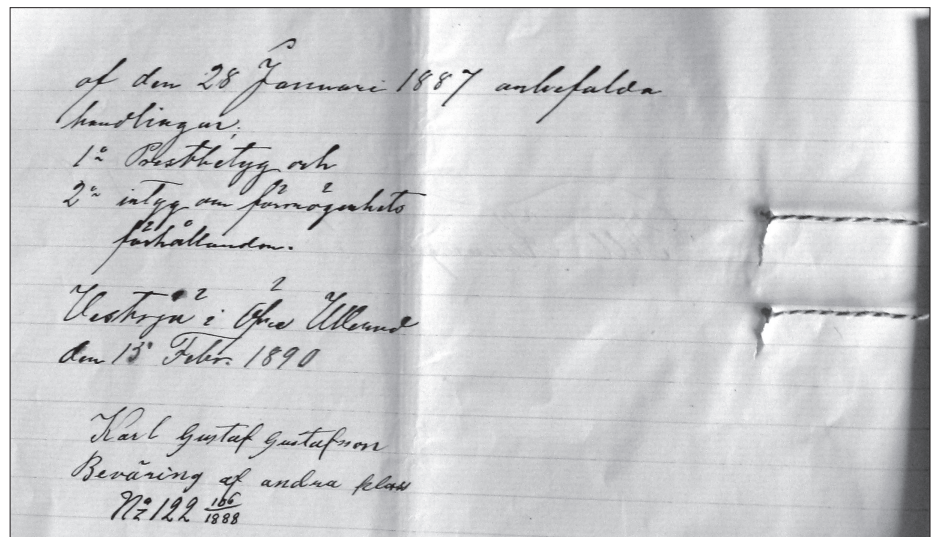 af den 28 Januari 1887 anbefalda
handlingar:
1º Prestbetyg och
2º intyg om förmögenhets
förhållanden.
Vestsjö i Öfre Ullerud
den 15 Febr. 1890
Karl Gustaf Gustafson
Beväring af andra klass
Nº 122 166/1888